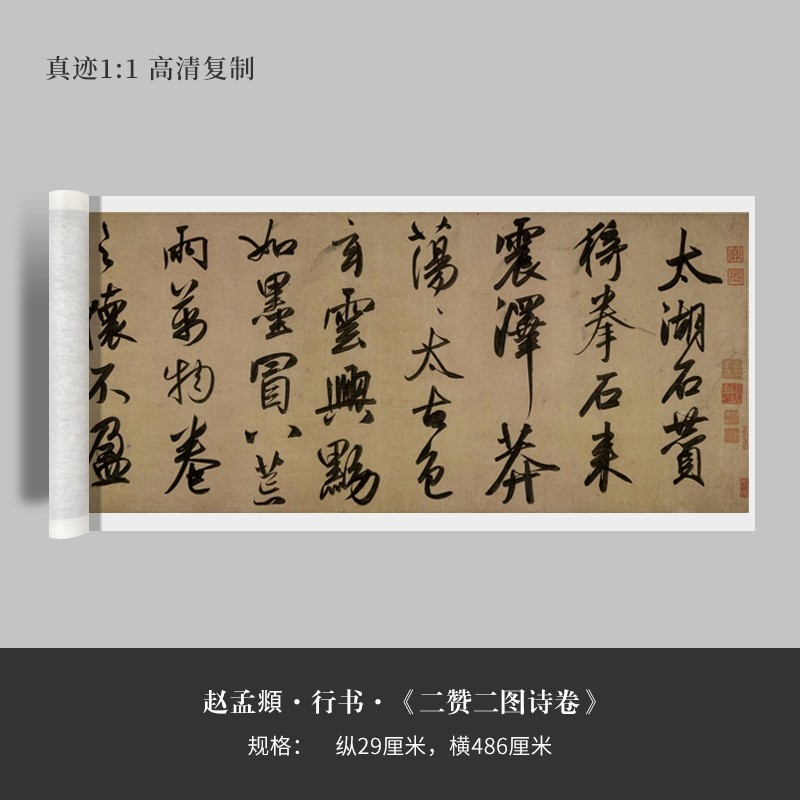 真迹1:1 高清复制
太湖石賛
猗拳石来
震澤莽
蕩々太古色
玄雲興黝
如墨冐八荒
雨萬物卷
之懷不盈
赵孟頫·行书·《二赞二图诗卷》
规格： 纵29厘米，横486厘米